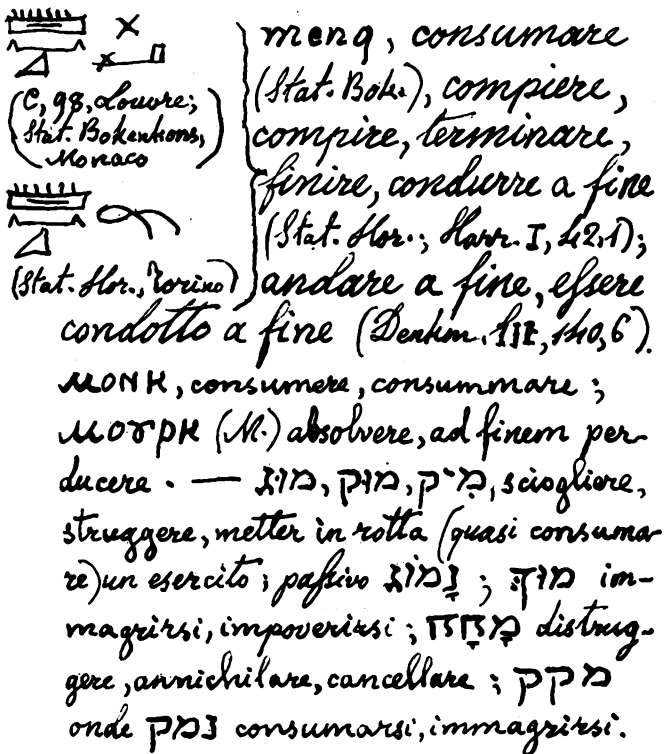 (C, 98, Louvre;
Stat. Bokenkons,
Monaco)
(Stat. Hor., Torino)
menq, consumare
(Stat. Bok.), compiere,
compire, terminare,
finire, condurre a fine
(Stat. Hor.; Harr. I, 42,1);
andare a fine, essere
condotto a fine (Denkm. III, 140, 6).
ⲙⲟⲛⲕ, consumere, consummare;
ⲙⲟⲩⲛⲕ (M.) absolvere, ad finem per-
ducere. — מוג, מוק, מיק, sciogliere,
struggere, metter in rotta (quasi consuma-
re) un esercito; passivo נָמוֹג; מוּךְ im-
magrirsi, impoverirsi; מָחָה distrug-
gere, annichilare, cancellare; מקק
onde נמק consumarsi, immagrirsi.